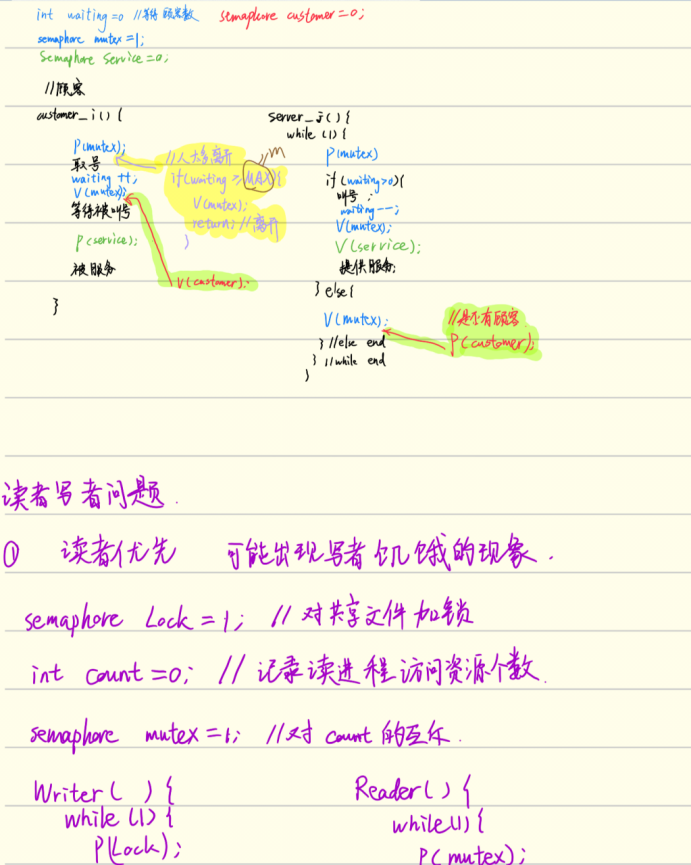 int waiting=0 //等待顾客数 semaphore customer=0;
semaphore mutex=1;
Semaphore Service=0;
//顾客
customer_i() {
P(mutex);
取号
waiting ++;
V(mutex);
等待被叫号
P(service);
被服务
}
//人太多离开
if(waiting ≥ MAX){
m
V(mutex);
return; //离开
}
V(customer);
Server_j() {
while (1) {
P(mutex)
if (waiting>0){
叫号;
waiting--;
V(mutex);
V(service);
提供服务;
} else{
V(mutex);
} //else end
} //while end
}
//是否有顾客
P(customer);
读者写者问题.
① 读者优先 可能出现写者饥饿的现象.
semaphore Lock = 1; // 对共享文件加锁
int count =0; // 记录读进程访问资源个数.
semaphore mutex=1; //对 count 的互斥.
Writer( ) {
while (1) {
P(Lock);
Reader( ) {
while(1) {
P(mutex);